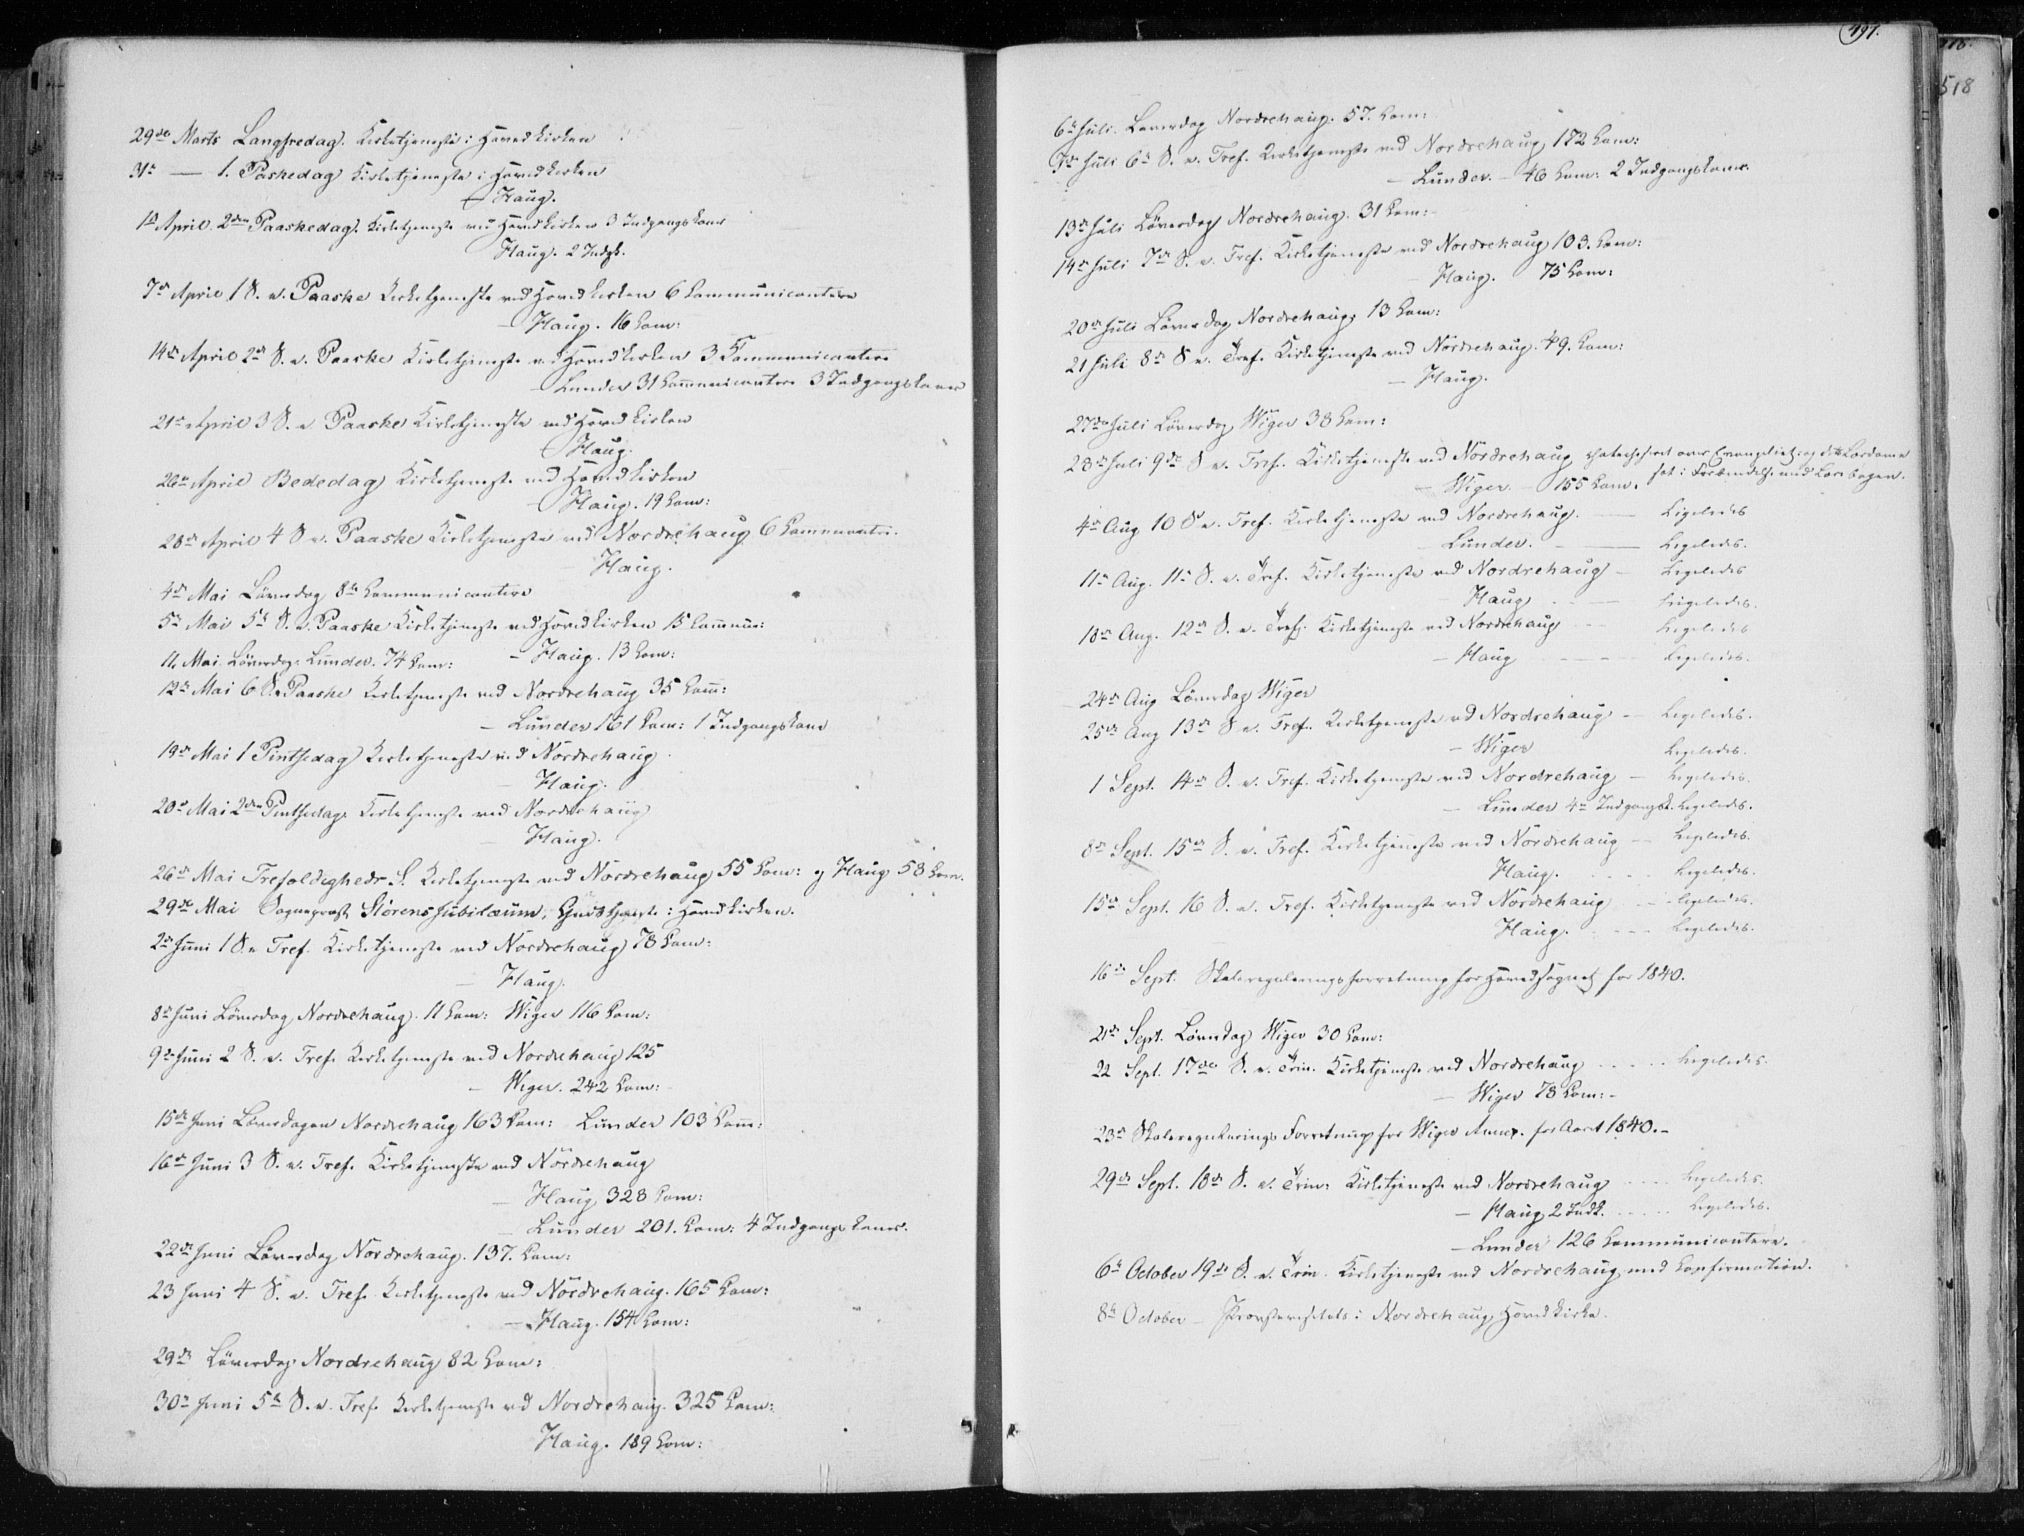 29de Marts Langfredag. Kirketjeneste i Hovedkirken
31te — 1. Paskedag Kirketjeneste i Hovedkirken
— Haug.
1ste April. 2den Paaskedag. Kirketjeneste ved Hovedkirken 3 Indgangskoner
Haug. 2 Indgk.
7de April 1 S. e. Paaske Kirketjeneste ved Hovedkirken 6 Communicantere
— Haug. 16 Com:
14de April 2de S. e. Paaske Kirketjeneste ved Hovedkirken 3 Communicantere
— Lunder 31 Communicantere 3 Indgangskoner
21de April 3 S. e. Paaske Kirketjeneste ved Hovedkirken
— Haug.
26de April Bededag Kirketjeneste ved Hovedkirken
— Haug. 19 Com:
28de April 4 S. e. Paaske Kirketjeneste ved Nordrehaug 6 Communicantr.
— Haug.
4de Mai Löverdag 8te Communicantere
5te Mai 5te S. e. Paaske Kirketjeneste ved Hovedkirken 15 Commun:
— Haug. 13 Com:
11. Mai. Löverdag. Lunder. 74 Com:
12te Mai 6 S. e. Paaske Kirketjeneste ved Nordrehaug 35 Com:
— Lunder 161 Com: 1 Indgangskone
19de Mai 1 Pintsedag Kirketjeneste ved Nordrehaug
— Haug.
20de Mai 2den Pintsedag. Kirketjeneste ved Nordrehaug
— Haug.
26de Mai Trefoldigheds S. Kirketjeneste ved Nordrehaug 55 Com: og Haug 53 Com.
29de Mai Sogneprest Störens Jubilæum, Gudstjeneste i Hovedkirken.
2de Juni 1 S. e. Tref. Kirketjeneste ved Nordrehaug 78 Com:
— Haug.
8de Juni Löverdag Nordrehaug. 11 Com: Wiger 116 Com:
9de Juni 2 S. e. Tref. Kirketjeneste ved Nordrehaug 125
— Wiger. 242 Com:
15de Juni Löverdagen Nordrehaug 163 Com: Lunder 103 Com:
16de Juni 3 S. e. Tref. Kirketjeneste ved Nordrehaug
— Haug 328 Com:
— Lunder 201. Com: 4 Indgangskoner.
22de Juni Löverdag Nordrehaug. 137. Com:
23 Juni 4 S. e. Tref. Kirketjeneste ved Nordrehaug. 165 Com:
— Haug. 154 Com:
29de Löverdag Nordrehaug 82 Com:
30te Juni 5te S. e. Tref. Kirketjeneste ved Nordrehaug. 325 Com:
Haug. 189 Com:
497.
518
6te Juli. Løverdag Nordrehaug. 57. Com:
7de Juli 6te S. e. Tref. Kirketjeneste ved Nordrehaug 172 Com:
— Lunder. — 46 Com: 2 Indgangskoner.
13de Juli Löverdag Nordrehaug. 31 Com:
14de Juli 7de S. e. Tref. Kirketjeneste ved Nordrehaug 103. Com:
— Haug. 75 Com:
20de Juli Löverdag Nordrehaug 13 Com:
21 Juli 8de S. e. Tref. Kirketjeneste ved Nordrehaug. 49. Com:
— Haug.
27de Juli Löverdag Wiger 38 Com:
28de Juli 9de S. e. Tref. Kirketjeneste ved Nordrehaug catechiseret over Evangeliet og dets Lærdomme
— Wiger. — 155 Com. sat i Forbindelse med Lærebogen.
4de Aug 10 S. e. Tref. Kirketjeneste ved Nordrehaug. — Ligeledes
— Lunder. — Ligeledes.
11te Aug. 11te S. e. Tref. Kirketjeneste ved Nordrehaug — Ligeledes
— Haug — Ligeledes.
18de Aug. 12te S. e. Tref. Kirketjeneste ved Nordrehaug — Ligeledes
— Haug — Ligeledes.
24de Aug Löverdag Wiger
25de Aug 13de S. e. Tref. Kirketjeneste ved Nordrehaug — Ligeledes.
— Wiger Ligeledes.
1 Sept. 14de S. e. Tref. Kirketjeneste ved Nordrehaug — Ligeledes.
— Lunder 4re Indgangsk. Ligeledes.
8de Sept. 15de S. e. Tref. Kirketjeneste ved Nordrehaug — Ligeledes.
Haug. Ligeledes.
15de Sept. 16 S. e. Tref. Kirketjeneste ved Nordrehaug Ligeledes.
Haug. Ligeledes.
16de Sept. Skolereguleringsforretning for Hovedsognet for 1840.
21de Sept. Løverdag Wiger 30 Com:
22 Sept. 17de S. e. Trin. Kirketjeneste ved Nordrehaug Ligeledes.
— Wiger 78 Com:
23de Skolereguleringsforretning for Wiger Annex. for Aaret 1840.
29de Sept. 18de S. e. Trin: Kirketjeneste ved Nordrehaug Ligeledes.
— Haug 2 Indk. Ligeledes.
— Lunder 126 Communicantere.
6te October 19de S. e. Trin. Kirketjeneste ved Nordrehaug med Confirmation.
8de October — Provstevisitats i Nordrehaug Hovedkirke.